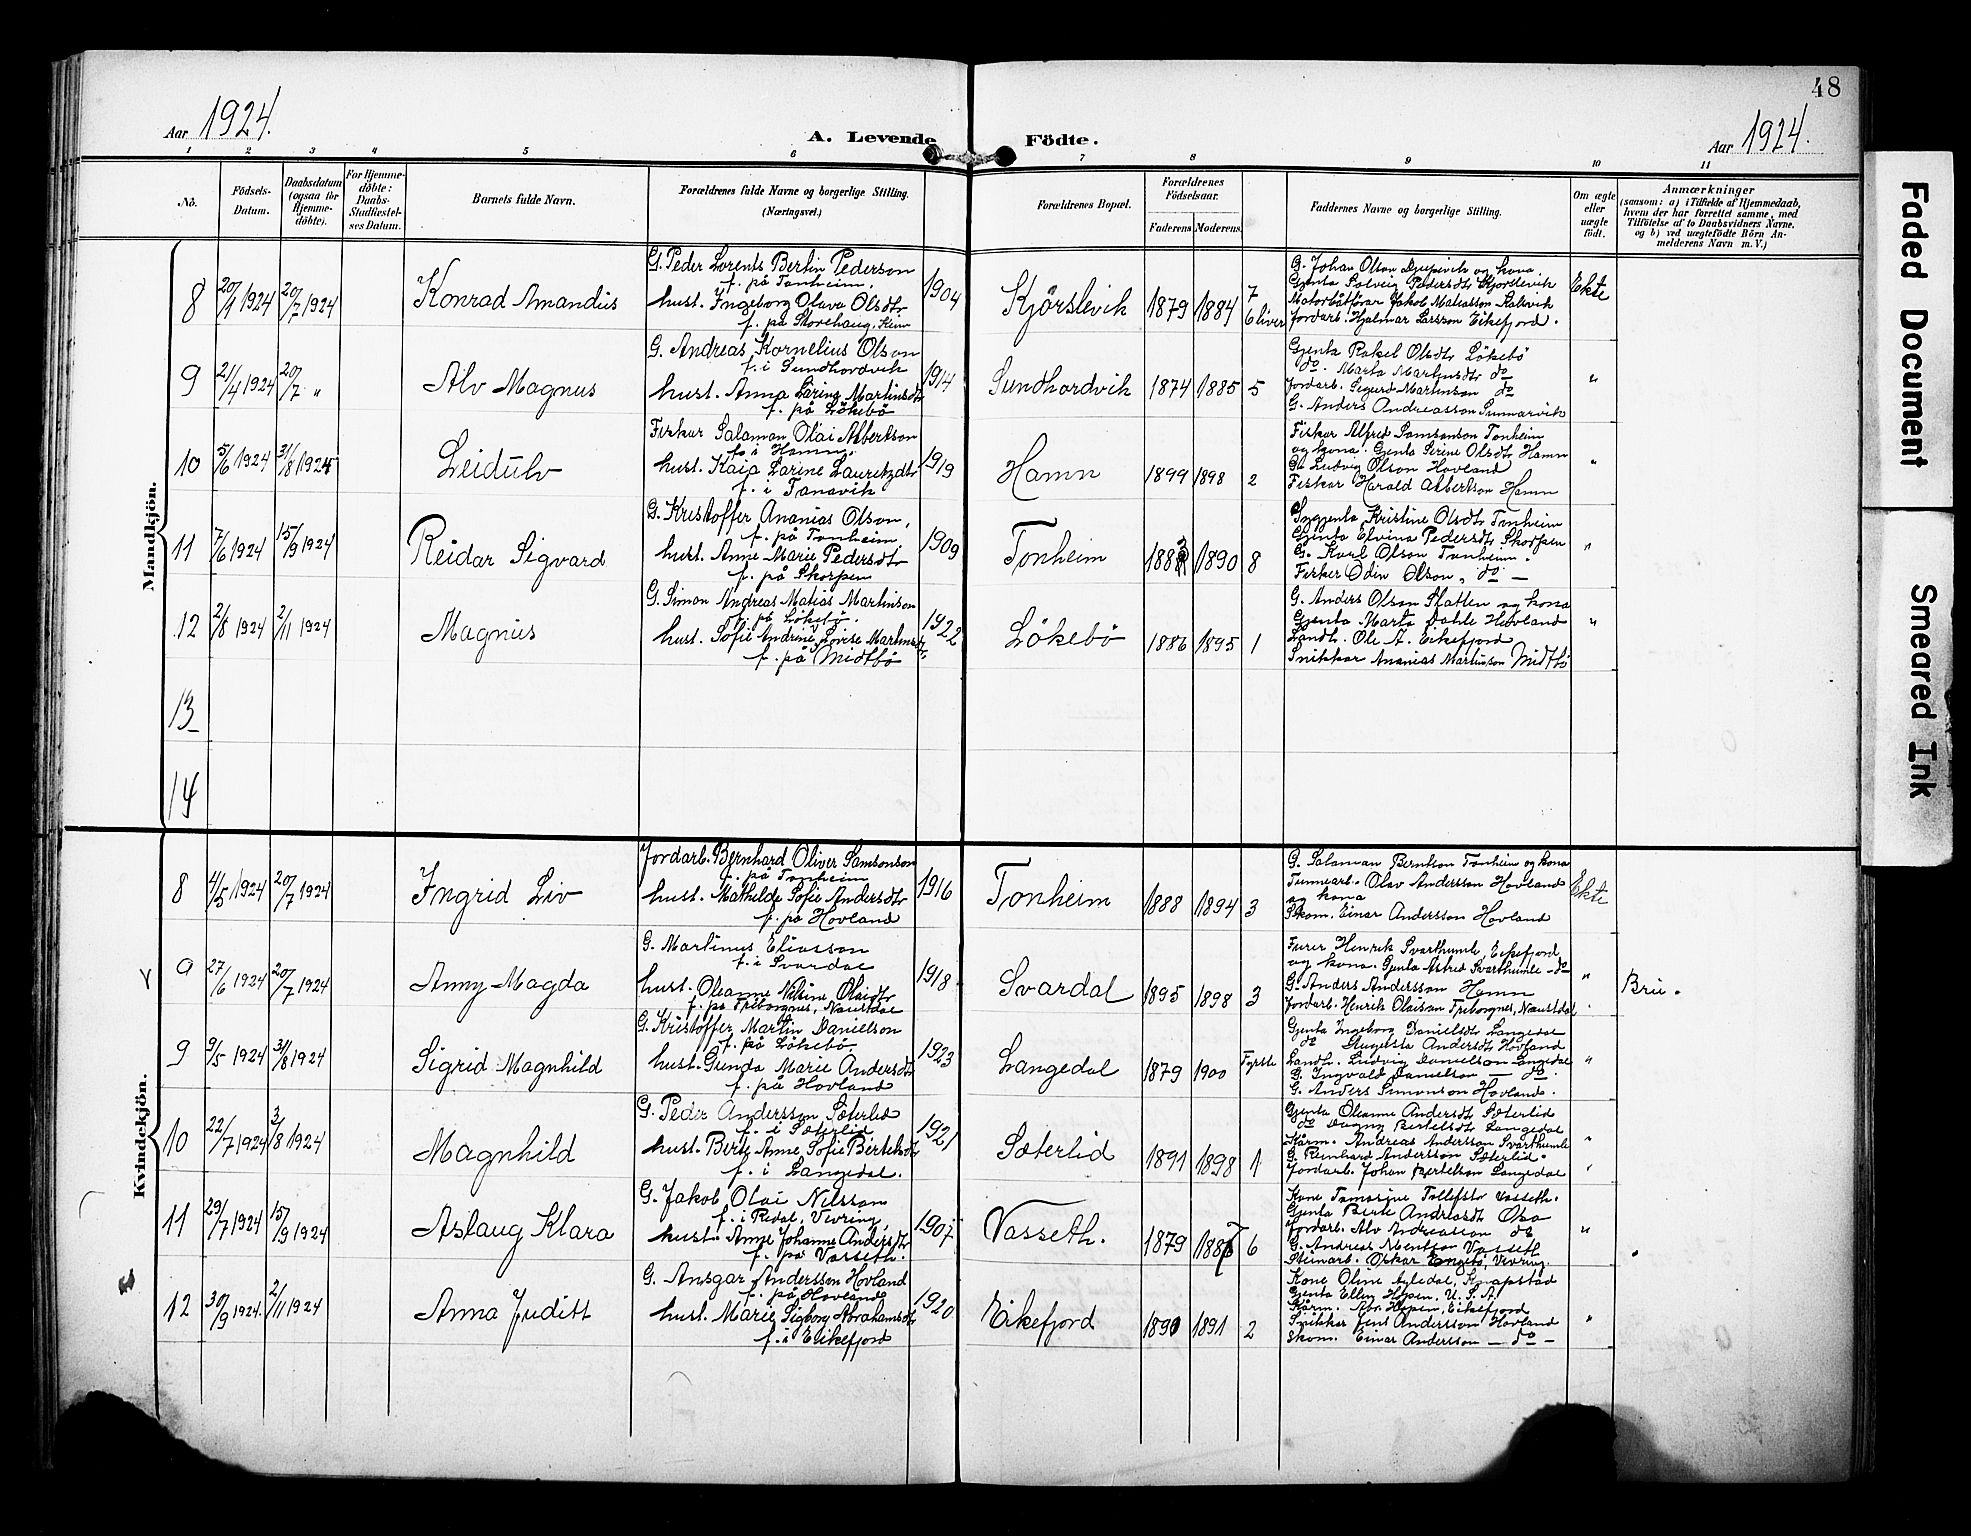 48
Aar 1924.
A. Levende Födte.
Aar 1924.
1 2 3 4 5 6 7 8 9 10 11
No.
Födsels-Datum.
Daabsdatum (ogsaa for Hjemme-döbte).
For Hjemme-döbte: Daabs-Stadfæstel-ses Datum.
Barnets fulde Navn.
Forældrenes fulde Navne og borgerlige Stilling.
(Næringsvei.)
Forældrenes Bopæl.
Forældrenes Födselsaar.
Faderens Moderens
Faddernes Navne og borgerlige Stilling.
Om ægte eller uægte födt.
Anmærkninger
(saasom: a) i Tilfælde af Hjemmedaab, hvem der har forrettet samme, med Tilföielse af to Daabsvidners Navne, og b) ved uægtefödte Börn Anmelderens Navn m. V.)
Mandkjön.
8 20/1 1924 20/7 1924 Konrad Amandus
G. Peder Lorents Bertin Pederson
f. på Tonheim.
hust. Ingeborg Olava Olsdtr
f. på Storehaug, Kinn
1904 Kjörslevik 1879 1884 7 6 liver
G. Johan Olson Djupevik og kona
Gjenta Solveig Pedersdtr Kjörslevik
Motorbåtförar Jakob Matiasson Kalsvik
Jordarb. Hjalmar Larsson Eikefjord.
Ekte
9 21/4 1924 20/7 " Alv Magnus
G. Andreas Kornelius Olson
f. i Sundhordvik
hust. Anna Larina Martinsdtr
f. på Lökebö
1914 Sundhordvik 1874 1885 5
Gjenta Rakel Olsdtr Lökebö
do. Marta Martinsdtr do
Jordarb. Sigurd Martinson do
G. Anders Andreasson Sunnarvik
"
10 5/6 1924 31/8 1924 Leidulv
Fiskar Salamon Olai Albertson
f. i Hamn.
hust. Kaia Larine Lauritzdtr
f. i Tansvik
1919 Hamn 1899 1898 2
Fiskar Alfred Samsonson Tonheim
og kona. Gjenta Serine Olsdtr Hamn
G. Ludvig Olson Hovland
Fiskar Harald Albertson Hamn
"
11 7/6 1924 15/9 1924 Reidar Sigvard
G. Kristoffer Ananias Olson,
f. på Tonheim
hust. Anne Marie Pedersdtr
f. på Skorpen
1909 Tonheim 1883 1890 8
Sygjenta Kristine Olsdtr Tonheim
Gjenta Elvina Pedersdtr Skorpen
G. Karl Olson Tonheim.
Fisker Odin Olson, do —
"
12 2/8 1924 2/11 1924 Magnus
G. Simon Andreas Matias Martinson
f. på Lökebö.
hust. Sofie Andrine Lovise Martinsdtr
f. på Midtbö
1922 Lökebö 1886 1895 1
G. Anders Olson Slatten og kona
Gjenta Marta Dahle Hovland
Landh. Ole A. Eikefjord
Snikkar Ananias Martinson Midtbö
"
13
14
Kvindekjön.
8 4/5 1924 20/7 1924 Ingrid Liv
Jordarb. Bernhard Oliver Samsonson
f. på Tonheim
hust. Mathilde Sofie Andersdtr
f. på Hovland
1916 Tonheim 1888 1894 3
G. Salaman Berntson Tonheim og kona
Tunnearb. Olav Andersson Hovland
og kona
Skom. Einar Andersson Hovland
Ekte
9 27/6 1924 20/7 1924 Anny Magda
G. Martinus Eliasson
f. i Svardal
hust. Oleanne Nilsine Olaidtr
f. på Treborgnes, Naustdal
1918 Svardal 1895 1898 3
Furer Henrik Svarthumle, Eikefjord
og kona. Gjenta Astrid Svarthumle - do
G. Anders Andersson Hamn
Jordarb. Henrik Olaison Treborgnes, Naustdal
" Bru.
9 9/5 1924 31/8 1924 Sigrid Magnhild
G. Kristoffer Martin Danielson
f. på Lökebö
hust. Gunda Marie Andersdtr
f. på Hovland
1923 Langedal 1879 1900 Fyrste
Gjenta Ingeborg Danielsdtr Langedal
do Augusta Andersdtr Hovland
Landh. Ludvig Danielson Langedal
G. Ingvald Danielson — do.
G. Anders Simonson Hovland.
"
10 22/7 1924 3/8 1924 Magnhild
G. Peder Andersson Sæterlid
f. i Sæterlid
hust. Berte Anne Sofie Bertelsdtr
f. i Langedal.
1921 Sæterlid 1891 1898 1
Gjenta Oleanne Andersdtr Sæterlid
do Dagny Bertelsdtr Langedal
Kårm. Andreas Andersson Svarthumle
G. Reinhard Andersson Sæterlid.
Jordarb. Johan Bertelson Langedal
"
11 29/7 1924 15/9 1924 Aslaug Klara
G. Jakob Olai Nilsson
f. i Redal, Vevring,
hust. Anne Johanne Andersdtr
f. på Vasseth.
1907 Vasseth. 1879 1887 6
Kone Tomasine Tollefsdtr Vasseth.
Gjenta Berte Andreasdt Osa
Jordarb. Alv Andreasson do
G. Andreas Mentson Vasseth
Steinarb. Oskar Engebö, Vevring.
"
12 30/9 1924. 2/11 1924 Anna Juditt
G. Ansgar Andersson Hovland
f. på Hovland
hust. Marie Sigborg Abrahamsdtr
f. i Eikefjord
1920 Eikefjord 1890 1891 2
Kone Oline Myledal, Knapstad
Gjenta Ellen Hopen, U. S. A.
Kårm. Abr. Hopen, Eikefjord
Snikkar Jens Andersson Hovland
Skom. Einar Andersson — do —
"
Faded Document
Smeared Ink